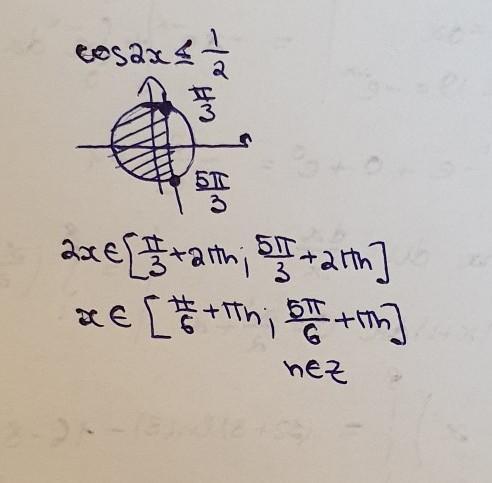 cos2x ≤ 1/2
π/3
5π/3
2x ∈ [π/3 + 2πn; 5π/3 + 2πn]
x ∈ [π/6 + πn; 5π/6 + πn]
n ∈ Z